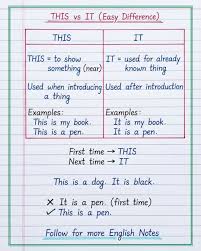 THIS vs IT (Easy Difference)
THIS IT
THIS = to show something (near)
IT = used for already known thing
Used when introducing a thing
Used after introduction
Examples:
This is my book.
This is a pen.
Examples:
It is my book.
It is a pen.
First time → THIS
Next time → IT
This is a dog. It is black.
✗ It is a pen. (first time)
✓ This is a pen.
Follow for more English Notes